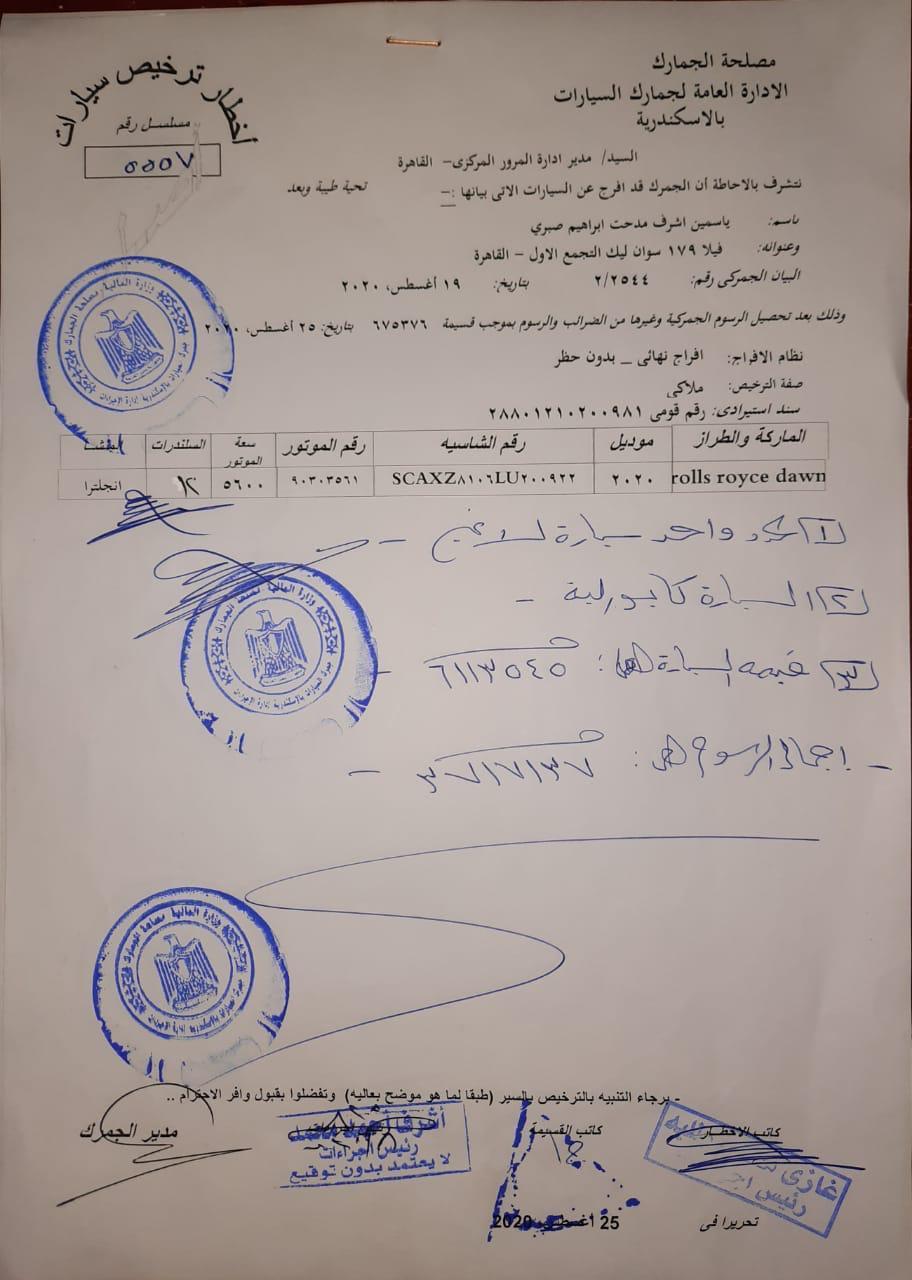 مصلحة الجمارك
الادارة العامة لجمارك السيارات
بالاسكندرية
أخطار ترخيص سيارات
مسلسل رقم
٥٥٥٧
السيد/ مدير ادارة المرور المركزى- القاهرة
تحية طيبة وبعد
نتشرف بالاحاطة أن الجمرك قد افرج عن السيارات الاتى بيانها :-
باسم: ياسمين اشرف مدحت ابراهيم صبري
وعنوانه: فيلا ١٧٩ سوان ليك التجمع الاول - القاهرة
البيان الجمركى رقم: ٢/٢٥٤٤ بتاريخ: ١٩ أغسطس، ٢٠٢٠
وذلك بعد تحصيل الرسوم الجمركية وغيرها من الضرائب والرسوم بموجب قسيمة ٦٧٥٣٧٦ بتاريخ: ٢٥ أغسطس، ٢٠٢٠
نظام الافراج: افراج نهائى _ بدون حظر
صفة الترخيص: ملاكي
سند استيرادى: رقم قومى ٢٨٨٠١٢١٠٢٠٠٩٨١
الماركة والطراز موديل رقم الشاسيه رقم الموتور سعة الموتور السلندرات المنشأ
rolls royce dawn ٢٠٢٠ SCAXZ٨١٠٦LU٢٠٠٩٢٢ ٩٠٣٠٣٥٦١ ٥٦٠٠ ١٢ انجلترا
١) واحد سيارة لا غير -
٢) السيارة كابورلية -
٣) قيمه السيارة : ٦١١٣٥٤٥ -
- اجمالى الرسوم : ٣٧١٧١٣٧ -
وزارة المالية مصلحة الجمارك
جمرك السيارات بالاسكندرية إدارة الإجراءات
وزارة المالية مصلحة الجمارك
جمرك السيارات بالاسكندرية إدارة الإجراءات
وزارة المالية مصلحة الجمارك
جمرك السيارات بالاسكندرية إدارة الإجراءات
- برجاء التنبيه بالترخيص بالسير (طبقا لما هو موضح بعاليه) وتفضلوا بقبول وافر الاحترام ..
كاتب الاخطار كاتب القسيمة مدير الجمرك
أشرف محمد
رئيس اجراءات
لا يعتمد بدون توقيع
غازى
رئيس
تحريرا فى 25 أغسطس، 2020